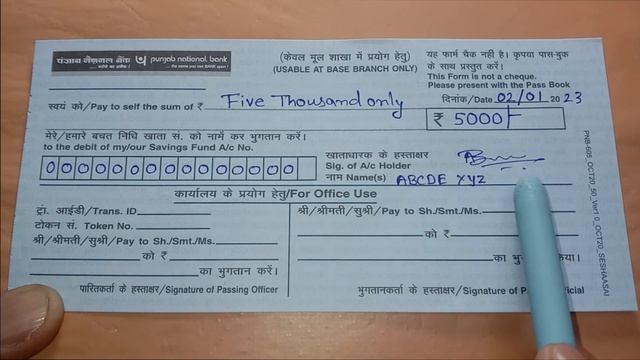 पंजाब नैशनल बैंक punjab national bank
(केवल मूल शाखा में प्रयोग हेतु)
(USABLE AT BASE BRANCH ONLY)
यह फार्म चैक नहीं है। कृपया पास-बुक
के साथ प्रस्तुत करें।
This Form is not a cheque.
Please present with the Pass Book
दिनांक/Date 02/01 2023
स्वयं को/Pay to self the sum of ₹ Five Thousand only
₹ 5000/-
मेरे/हमारे बचत निधि खाता सं. को नामें कर भुगतान करें।
to the debit of my/our Savings Fund A/c No.
00000000000000
खाताधारक के हस्ताक्षर
Sig. of A/c Holder
नाम Name(s) ABCDE XYZ
कार्यालय के प्रयोग हेतु/For Office Use
ट्रां. आईडी/Trans. ID
टोकन सं. Token No.
श्री/श्रीमती/सुश्री/Pay to Sh./Smt./Ms.
को ₹
का भुगतान करें।
पारितकर्ता के हस्ताक्षर/Signature of Passing Officer
श्री/श्रीमती/सुश्री/Pay to Sh./Smt./Ms.
को ₹
का
भुगतानकर्ता के हस्ताक्षर/Signature of
PNB-605_OCT20_50_Ver1.0_OCT20_SESHAASAI